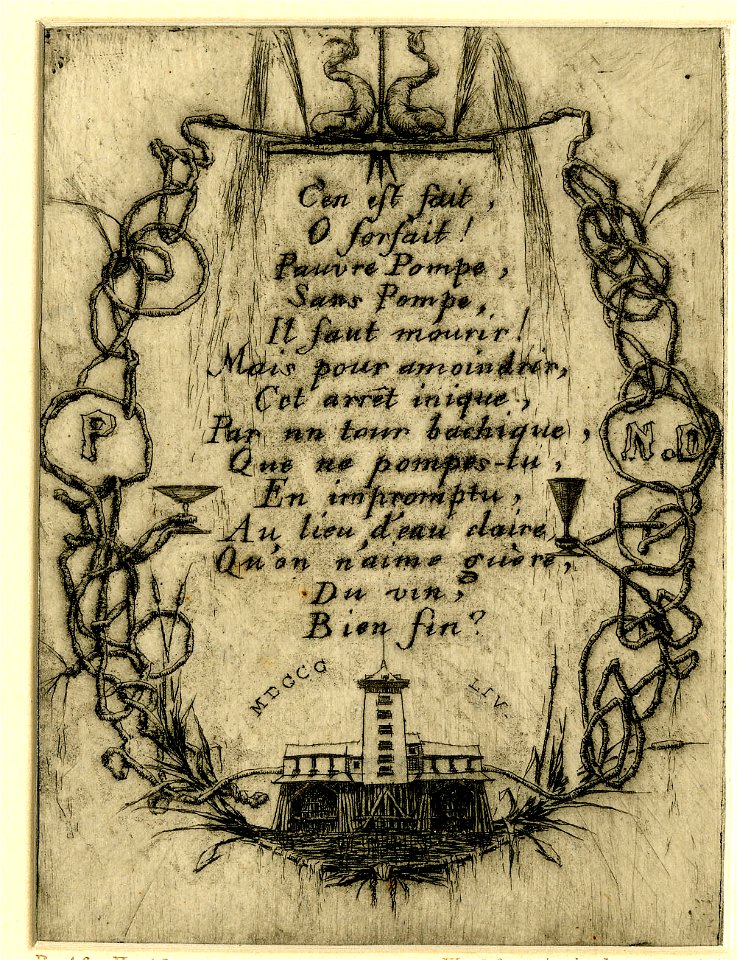 C'en est fait,
O forfait!
Pauvre Pompe,
Sans Pompe,
Il faut mourir!
Mais pour amoindrir,
Cet arrêt inique,
P
Par un tour bachique,
N.D
Que ne pompes-tu,
En impromptu,
Au lieu d'eau claire
Qu'on n'aime guère,
Du vin,
Bien fin?
MDCCC
LIV.